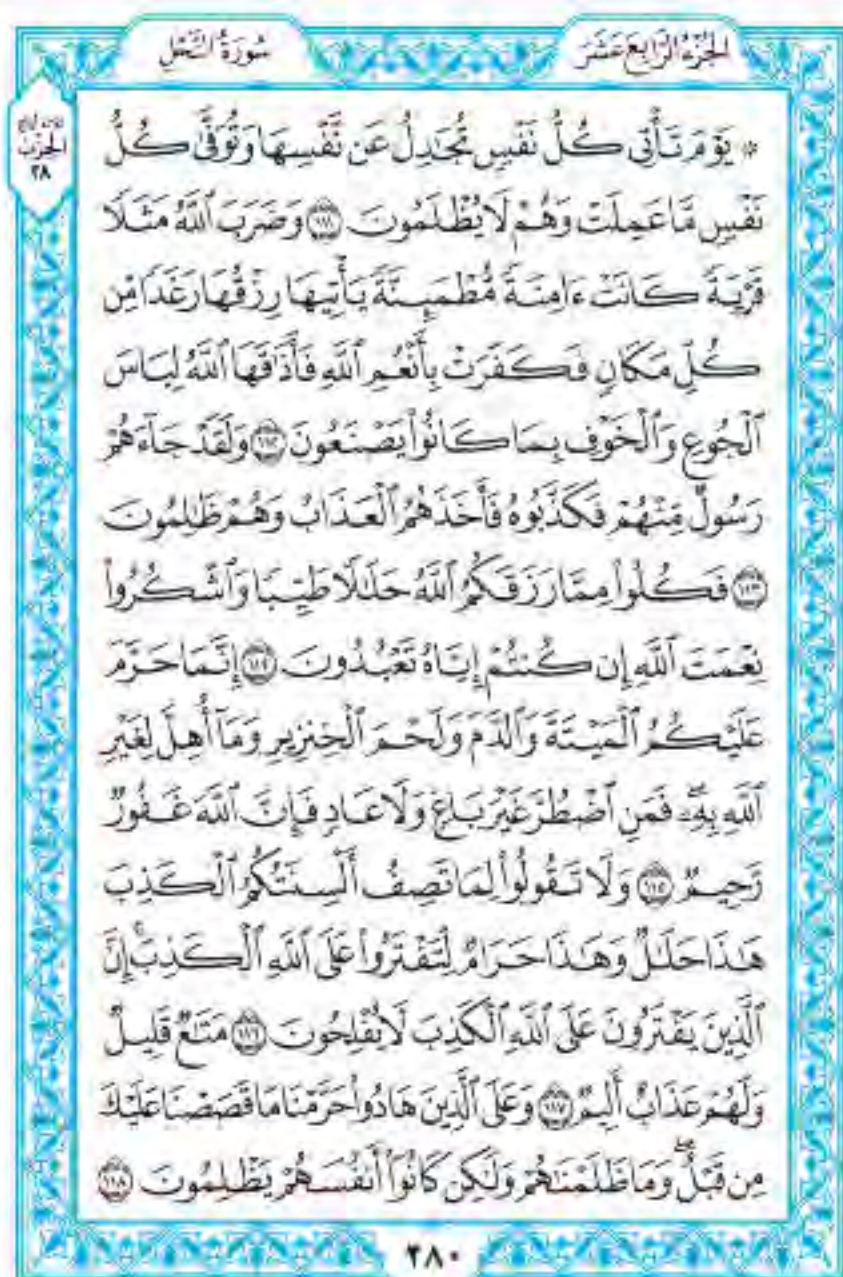 الجزء الرابع عشر
سورة النحل
الحزب
٢٨
۞ يَوْمَ تَأْتِى كُلُّ نَفْسٍ تُجَٰدِلُ عَن نَّفْسِهَا وَتُوَفَّىٰ كُلُّ
نَفْسٍ مَّا عَمِلَتْ وَهُمْ لَا يُظْلَمُونَ ١١١ وَضَرَبَ ٱللَّهُ مَثَلًا
قَرْيَةً كَانَتْ ءَامِنَةً مُّطْمَئِنَّةً يَأْتِيهَا رِزْقُهَا رَغَدًا مِّن
كُلِّ مَكَانٍ فَكَفَرَتْ بِأَنْعُمِ ٱللَّهِ فَأَذَٰقَهَا ٱللَّهُ لِبَاسَ
ٱلْجُوعِ وَٱلْخَوْفِ بِمَا كَانُوا۟ يَصْنَعُونَ ١١٢ وَلَقَدْ جَآءَهُمْ
رَسُولٌ مِّنْهُمْ فَكَذَّبُوهُ فَأَخَذَهُمُ ٱلْعَذَابُ وَهُمْ ظَٰلِمُونَ
١١٣ فَكُلُوا۟ مِمَّا رَزَقَكُمُ ٱللَّهُ حَلَٰلًا طَيِّبًا وَٱشْكُرُوا۟
نِعْمَتَ ٱللَّهِ إِن كُنتُمْ إِيَّاهُ تَعْبُدُونَ ١١٤ إِنَّمَا حَرَّمَ
عَلَيْكُمُ ٱلْمَيْتَةَ وَٱلدَّمَ وَلَحْمَ ٱلْخِنزِيرِ وَمَآ أُهِلَّ لِغَيْرِ
ٱللَّهِ بِهِۦ ۖ فَمَنِ ٱضْطُرَّ غَيْرَ بَاغٍ وَلَا عَادٍ فَإِنَّ ٱللَّهَ غَفُورٌ
رَّحِيمٌ ١١٥ وَلَا تَقُولُوا۟ لِمَا تَصِفُ أَلْسِنَتُكُمُ ٱلْكَذِبَ
هَٰذَا حَلَٰلٌ وَهَٰذَا حَرَامٌ لِّتَفْتَرُوا۟ عَلَى ٱللَّهِ ٱلْكَذِبَ ۚ إِنَّ
ٱلَّذِينَ يَفْتَرُونَ عَلَى ٱللَّهِ ٱلْكَذِبَ لَا يُفْلِحُونَ ١١٦ مَتَٰعٌ قَلِيلٌ
وَلَهُمْ عَذَابٌ أَلِيمٌ ١١٧ وَعَلَى ٱلَّذِينَ هَادُوا۟ حَرَّمْنَا مَا قَصَصْنَا عَلَيْكَ
مِن قَبْلُ ۖ وَمَا ظَلَمْنَٰهُمْ وَلَٰكِن كَانُوٓا۟ أَنفُسَهُمْ يَظْلِمُونَ ١١٨
٢٨٠